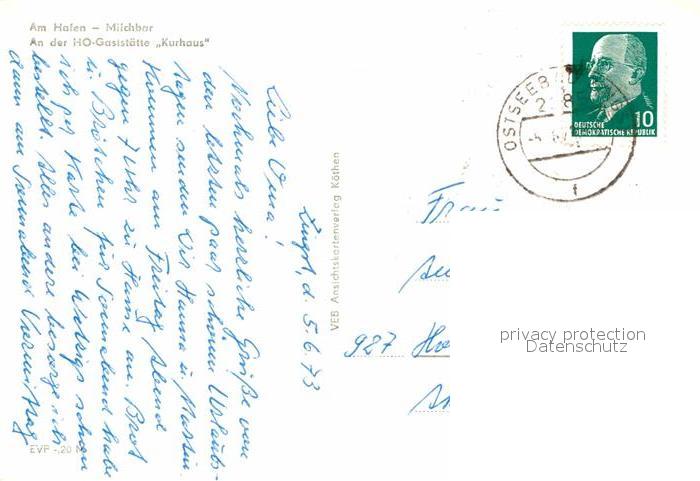 Am Hafen – Milchbar
An der HO-Gaststätte „Kurhaus"
Zingst, d. 5.6.73
Liebe Oma!
Nochmals herzliche Grüße von
den letzten paar schönen Urlaubs-
tagen senden Dir Hanna u. Martin.
Kommen am Freitag Abend
gegen 7 Uhr zu Hause an. Brot
u. Brötchen für Sonnabend habe
ich per Karte bei schon
bestellt. Alles andere besorge ich
dann am Sonnabend Vormittag
EVP -,20 M
VEB Ansichtskartenverlag Köthen
OSTSEEBAD
10
DEUTSCHE
DEMOKRATISCHE REPUBLIK
f
Frau
927
privacy protection
Datenschutz